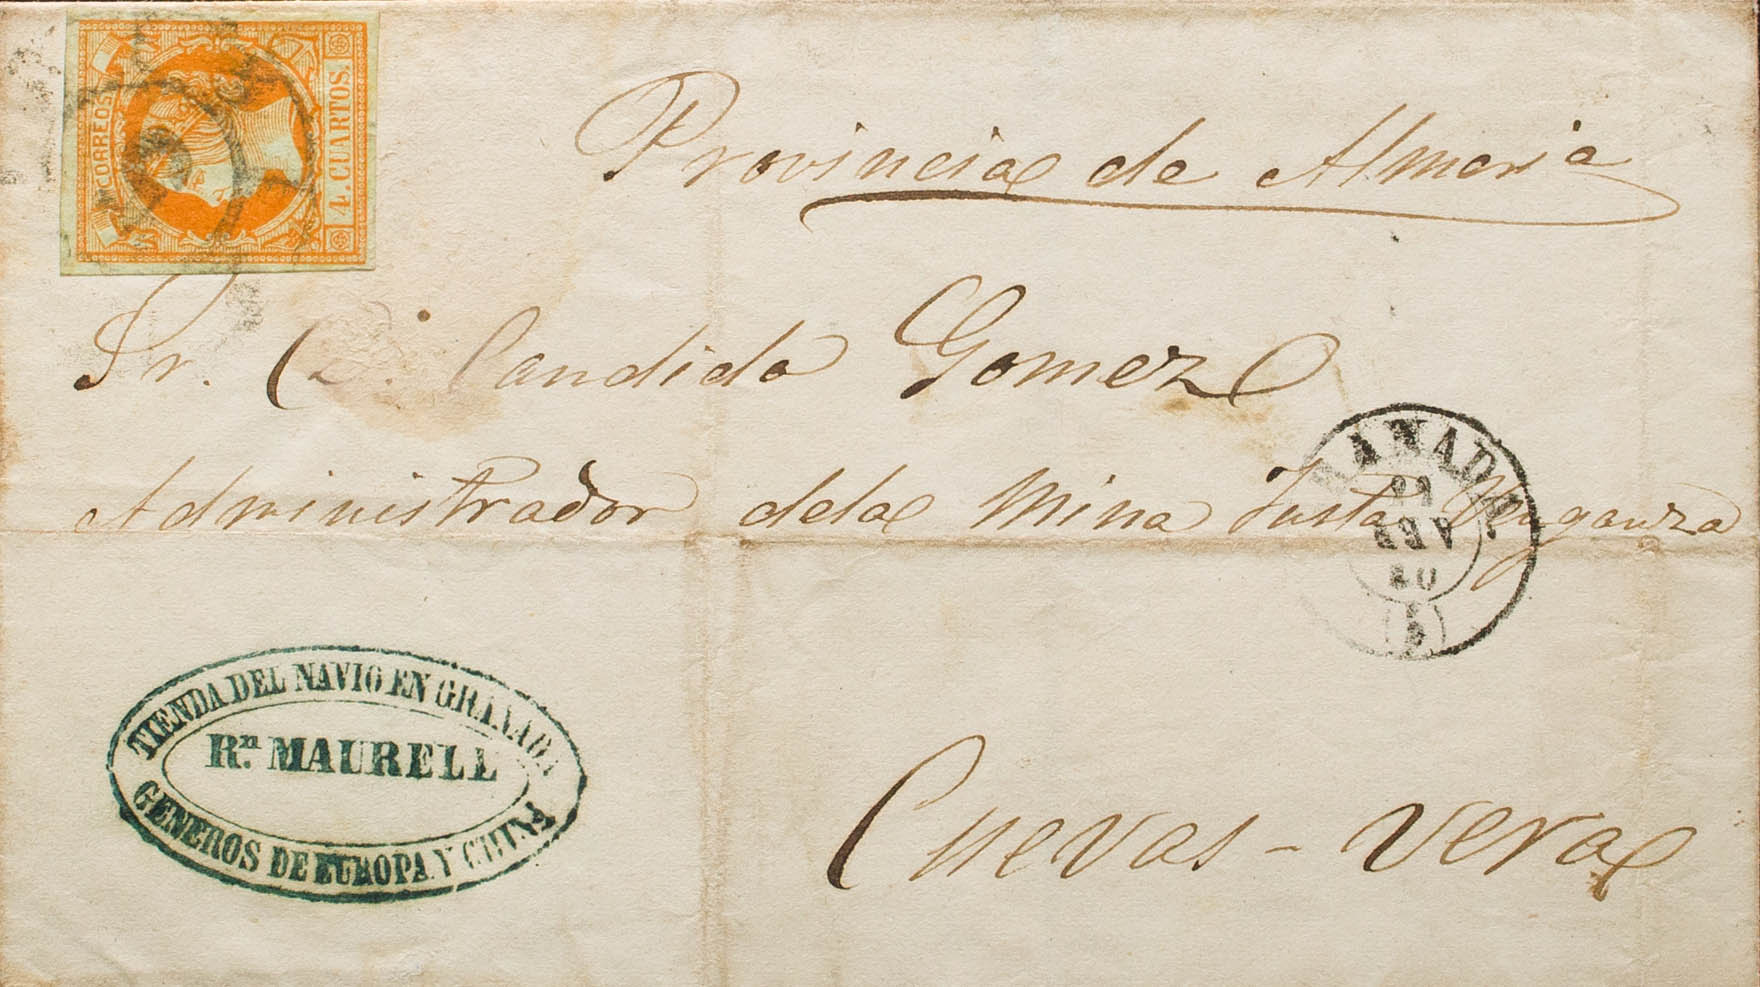 CORREOS
4. CUARTOS.
Provincia de Almeria
Sr. D. Candido Gomez
Administrador dela Mina Justa Venganza
GRANADA.
(5)
TIENDA DEL NAVIO EN GRANADA
Rn. MAURELL
GENEROS DE EUROPA Y CHINA
Cuevas - Vera